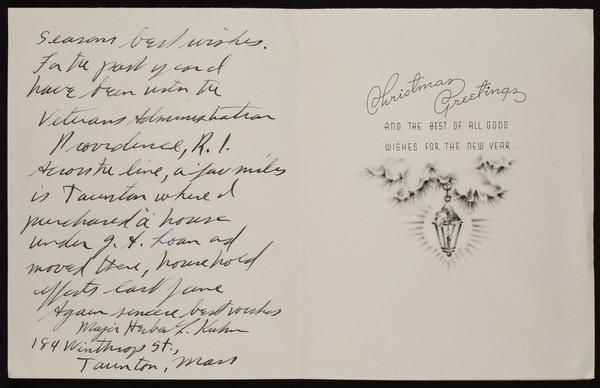 Seasons best wishes.
For the past year I
have been with the
Veterans Administration
Providence, R.I.
Across the line, a few miles
is Taunton where I
purchased a house
under g.I. Loan ad
moved there, household
effects last June
Again sincere best wishes
Major Herbe L. Kuhn
184 Winthrop St.,
Taunton, Mass
Christmas
Greetings
AND THE BEST OF ALL GOOD
WISHES FOR THE NEW YEAR..